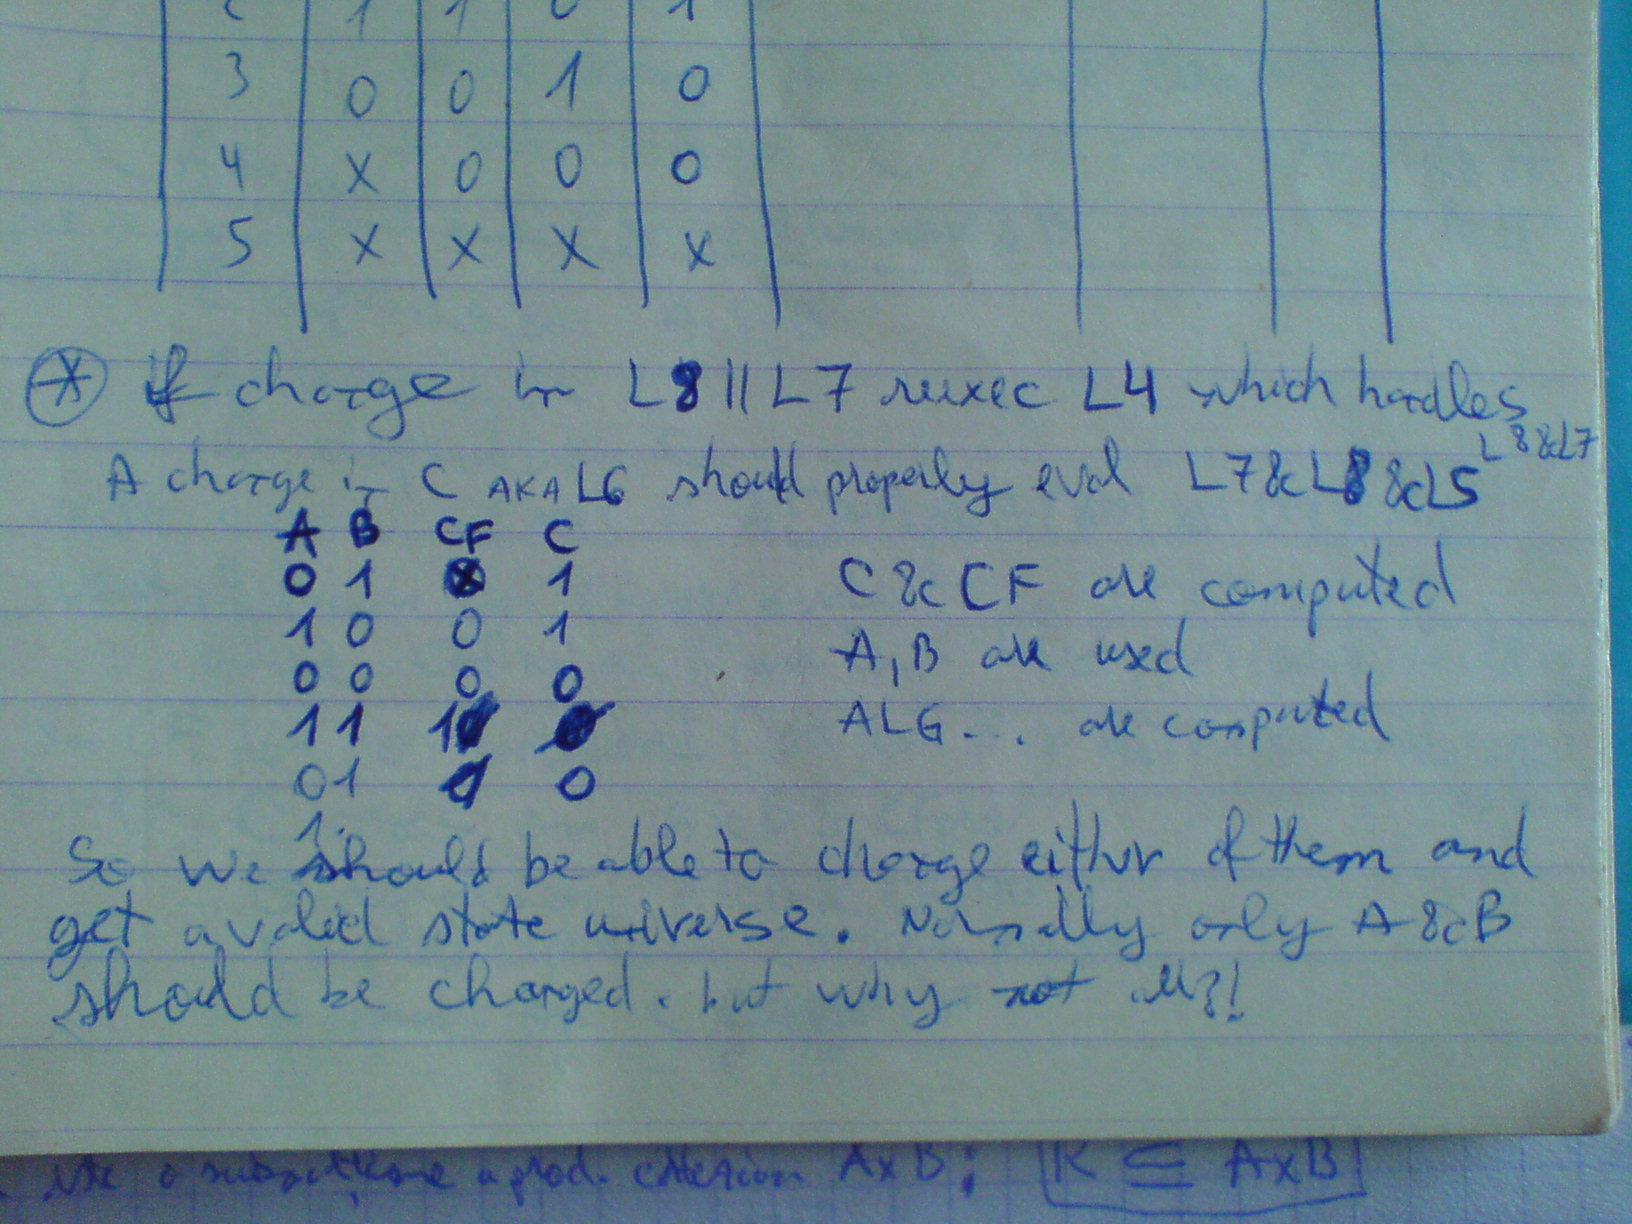 2 1 1 0 1
3 0 0 1 0
4 X 0 0 0
5 X X X X
* if change in L8 || L7 reexec L4 which handles L8&L7
A change in C AKA L6 should properly eval L7&L8&L5
A B CF C
0 1 1
1 0 0 1 C & CF are computed
0 0 0 0 A, B are used
1 1 1 ALG... are computed
0 1 0
1
So we should be able to change either of them and
get a valid state universe. Normally only A & B
should be changed. but why not all?!
use a subset A×B: R ⊆ A×B